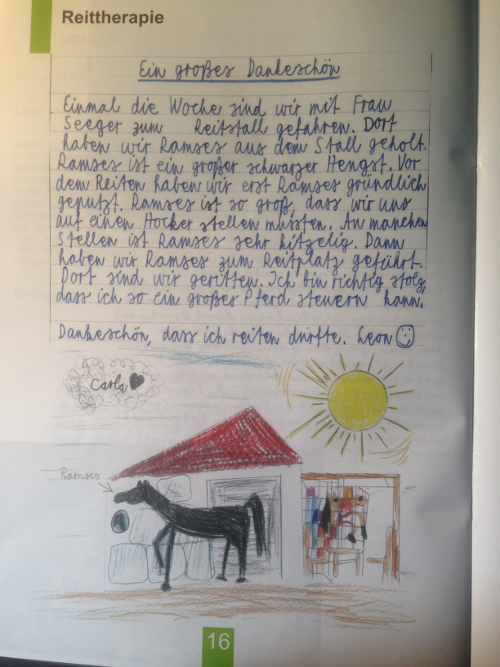 Reittherapie
Ein großes Dankeschön
Einmal die Woche sind wir mit Frau
Seeger zum Reitstall gefahren. Dort
haben wir Ramses aus dem Stall geholt.
Ramses ist ein großer schwarzer Hengst. Vor
dem Reiten haben wir erst Ramses gründlich
geputzt. Ramses ist so groß, dass wir uns
auf einen Hocker stellen mussten. An manchen
Stellen ist Ramses sehr kitzelig. Dann
haben wir Ramses zum Reitplatz geführt.
Dort sind wir geritten. Ich bin richtig stolz,
dass ich so ein großes Pferd steuern kann.
Dankeschön, dass ich reiten durfte. Leon
Carla
Ramses
16